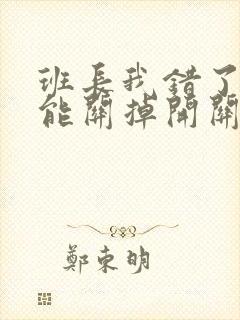 班長我錯了
能關掉開關
鄭東明